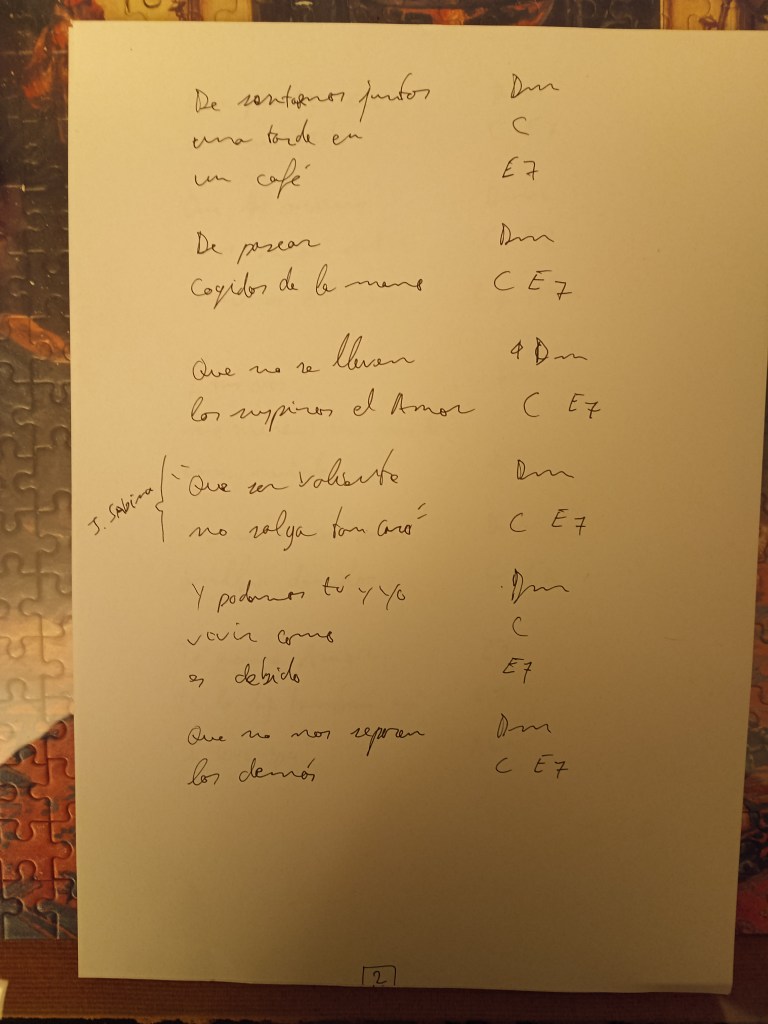 De sentarnos juntos Dm
una tarde en C
un café E7
De pasear Dm
Cogidos de la mano C E7
Que no se lleven Dm
los suspiros el Amor C E7
J. Sabina { "Que ser valiente Dm
no salga tan caro" C E7
Y podamos tú y yo Dm
vivir como C
es debido E7
Que no nos separen Dm
los demás C E7
2